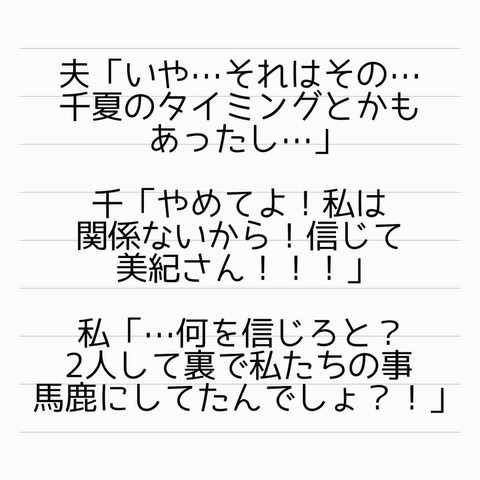 夫「いや…それはその…
千夏のタイミングとかも
あったし…」
千「やめてよ！私は
関係ないから！信じて
美紀さん！！！」
私「…何を信じろと？
2人して裏で私たちの事
馬鹿にしてたんでしょ？！」